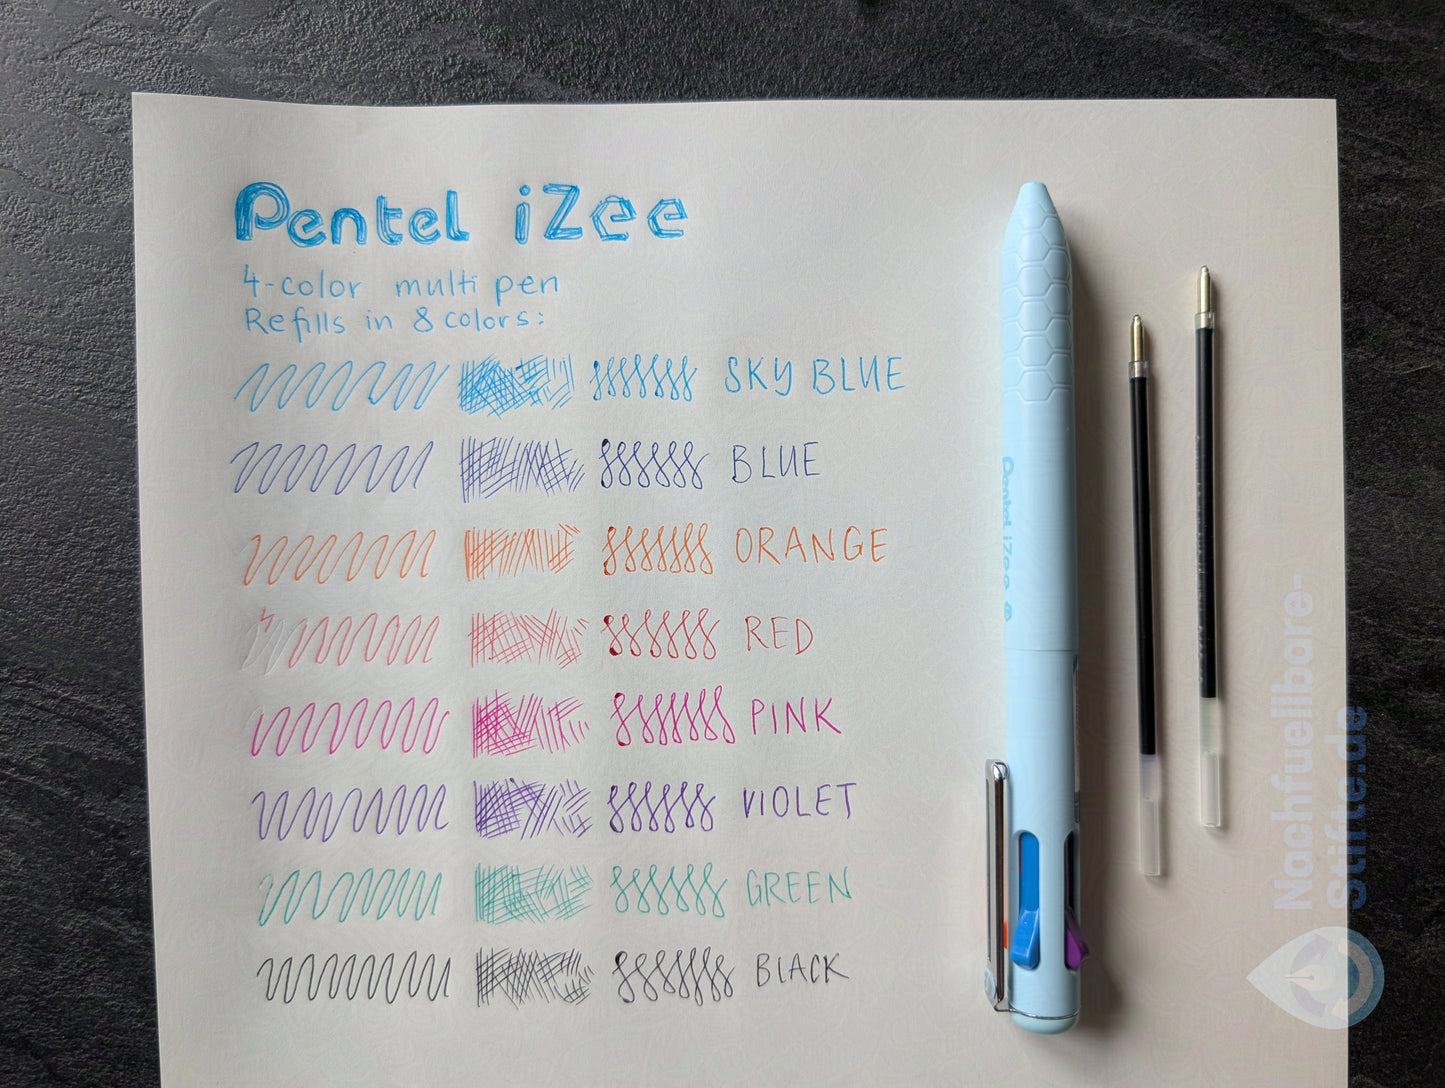 Pentel iZee
4-color multi pen
Refills in 8 colors:
SKY BLUE
BLUE
ORANGE
RED
PINK
VIOLET
GREEN
BLACK
Pentel iZee
Nachfuellbare-
Stifte.de